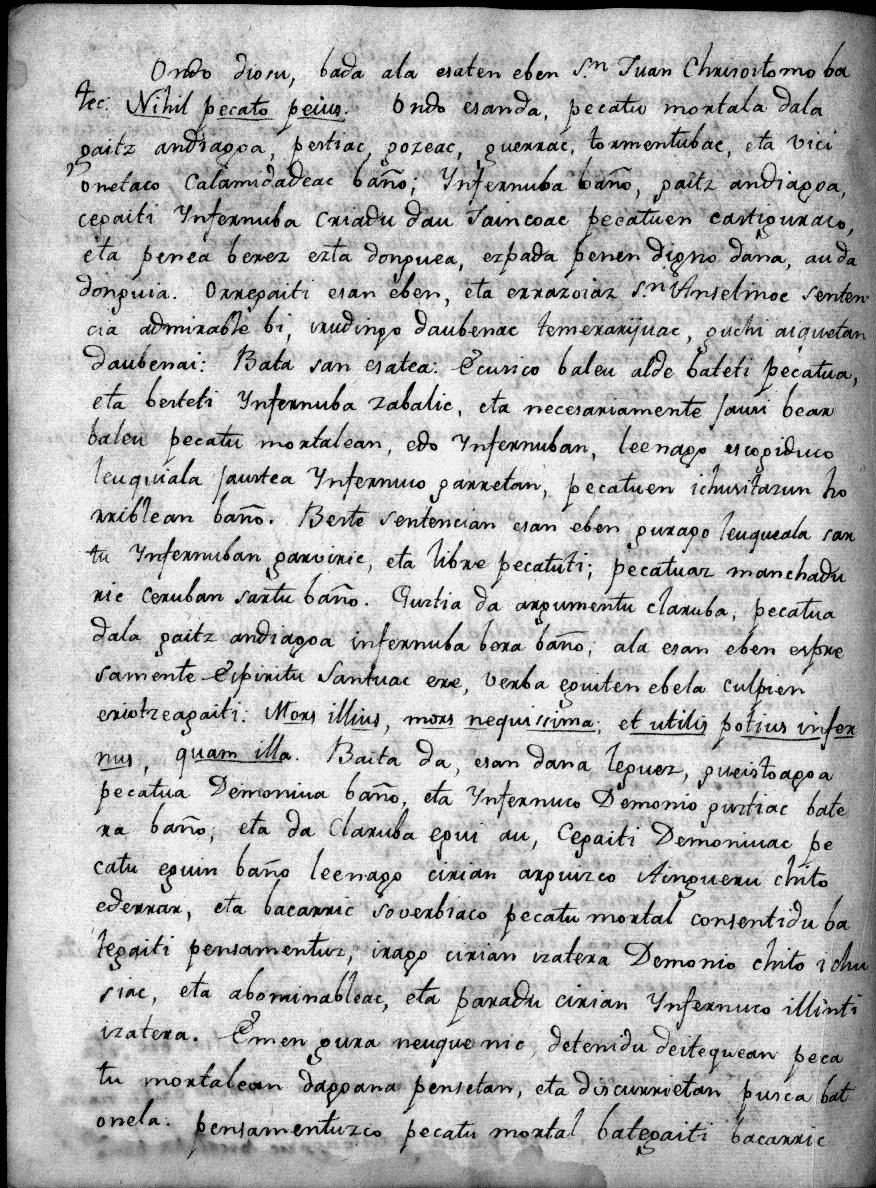 Ondo diosu, bada ala esaten eben S.n Juan Chrisostomo ba
tec: Nihil pecato peius. Ondo esanda, pecatu mortala dala
gaitz andiagoa, pestiac, gozeac, guerrac, tormentubac, eta vici
onetaco Calamidadeac baño; Ynfernuba baño, gaitz andiagoa,
cegaiti Ynfernuba Criadu dau Jaincoac pecatuen castiguraco,
eta penea berez ezta donguea, ezpada penen digno dana, au da
donguia. Orregaiti esan eben, eta errazoiaz S.n Anselmoc senten
cia admirable bi, irudingo daubenac temerarijuac, guchi aiquetan
daubenai: Bata san esatea: Ecusico baleu alde bateti pecatua,
eta besteti Ynfernuba zabalic, eta necesariamente jausi bear
baleu pecatu mortalean, edo Ynfernuban, leenago escogiduco
leuquiala jaustea Ynfernuco garretan, pecatuen ichusitasun ho
rriblean baño. Beste sentencian esan eben gurago leuqueala sar
tu Ynfernuban garviric, eta libre pecatuti; pecatuaz manchadu
ric ceruban sartu baño. Guztia da argumentu claruba, pecatua
dala gaitz andiagoa infernuba bera baño; ala esan eben espre
samente Espiritu Santuac ere, verba eguiten ebela culpien
eriotzeagaiti: Mors illius, mors nequissima; et utilis potius infer
nus, quam illa. Baita da, esan dana leguez, gueistoagoa
pecatua Demoniua baño, eta Ynfernuco Demonio guztiac bate
ra baño, eta da claruba egui au, Cegaiti Demoniuac pe
catu eguin baño leenago cirian arguizco Aingueru chito
ederrar, eta bacarric soverbiaco pecatu mortal consentidu ba
tegaiti pensamentuz, irago cirian izatera Demonio chito ichu
siac, eta abominableac, eta paradu cirian Ynfernuco illinti
izatera. Emen gura neuque nic, detenidu deitequean peca
tu mortalean dagoana pensetan, eta discurrietan pusca bat
onela. pensamentuzco pecatu mortal bategaiti bacarric